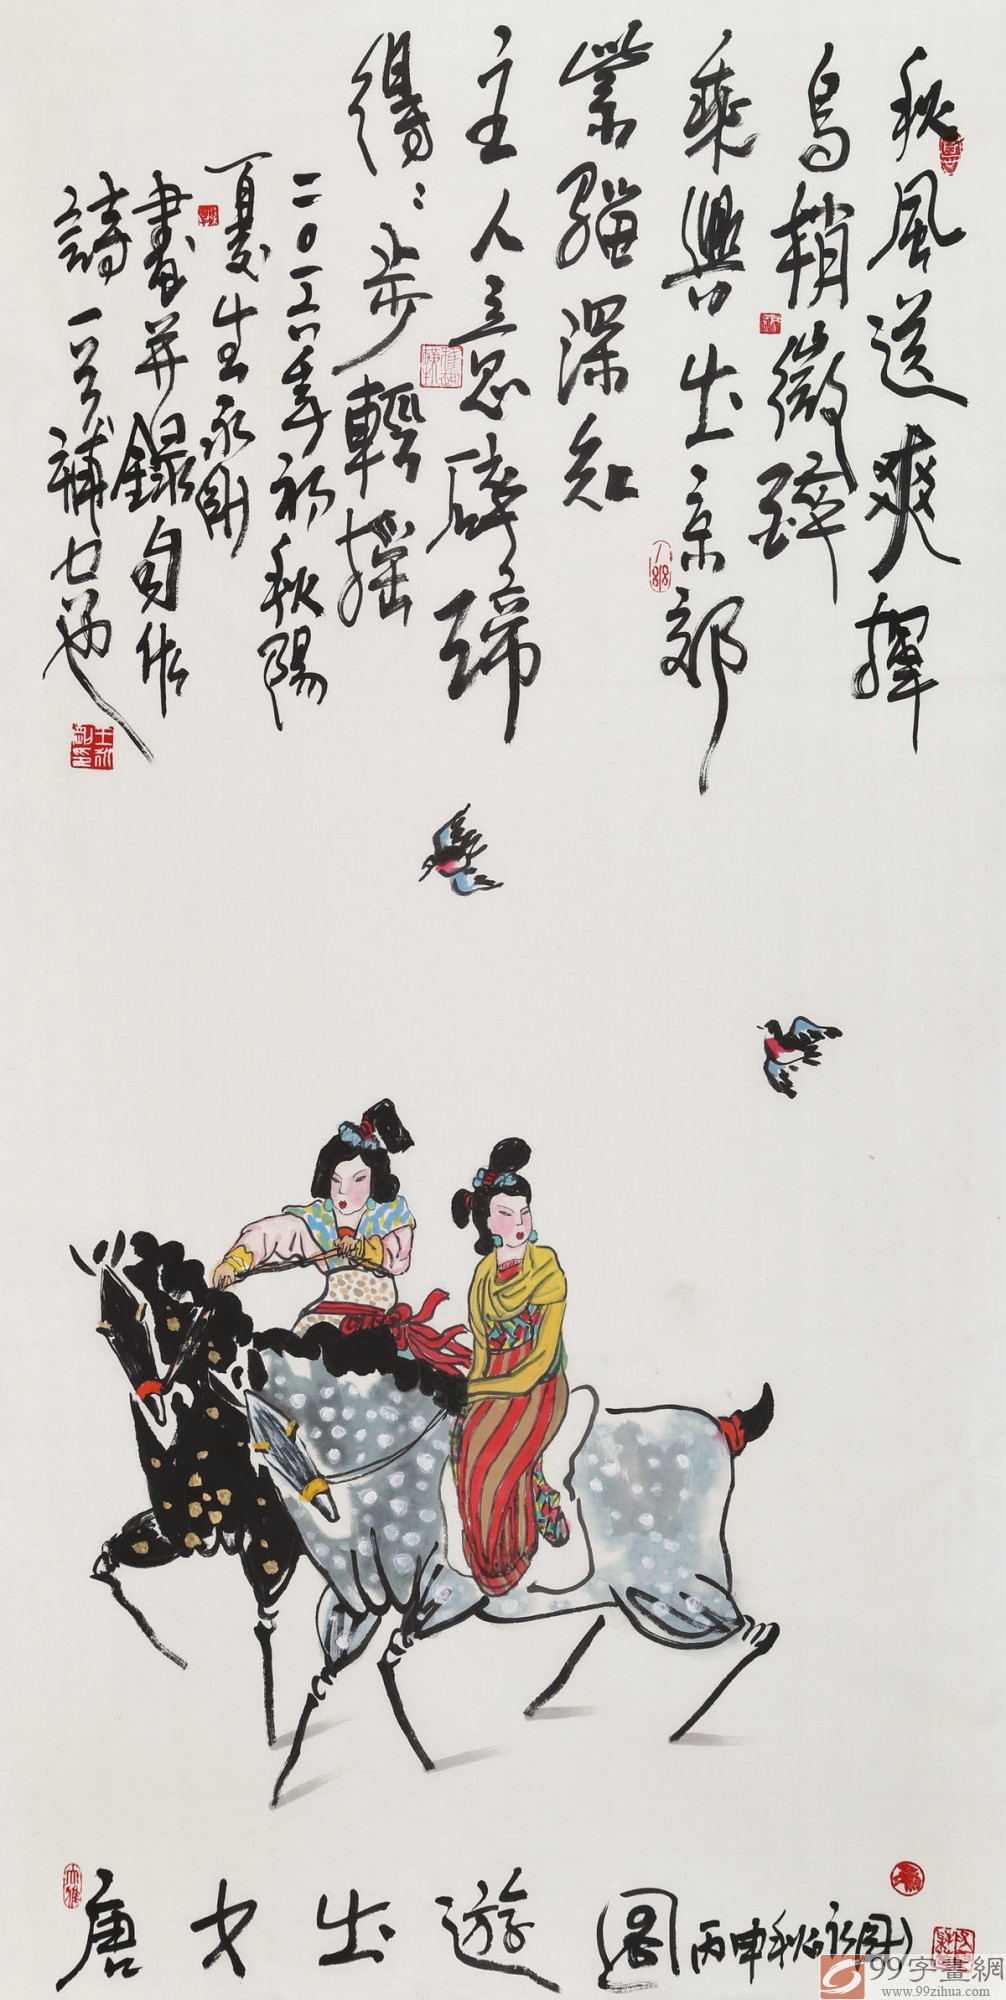 秋風送爽揮
烏鞘微醉
乘興出京郊
紫騮深知
主人意思碎蹄
得〻步輕搖
二〇一六年初秋陽
夏生永剛
書并錄自作
詩一首補白也
唐女出遊圖
丙申秋
99字畫網
www.99zihua.com